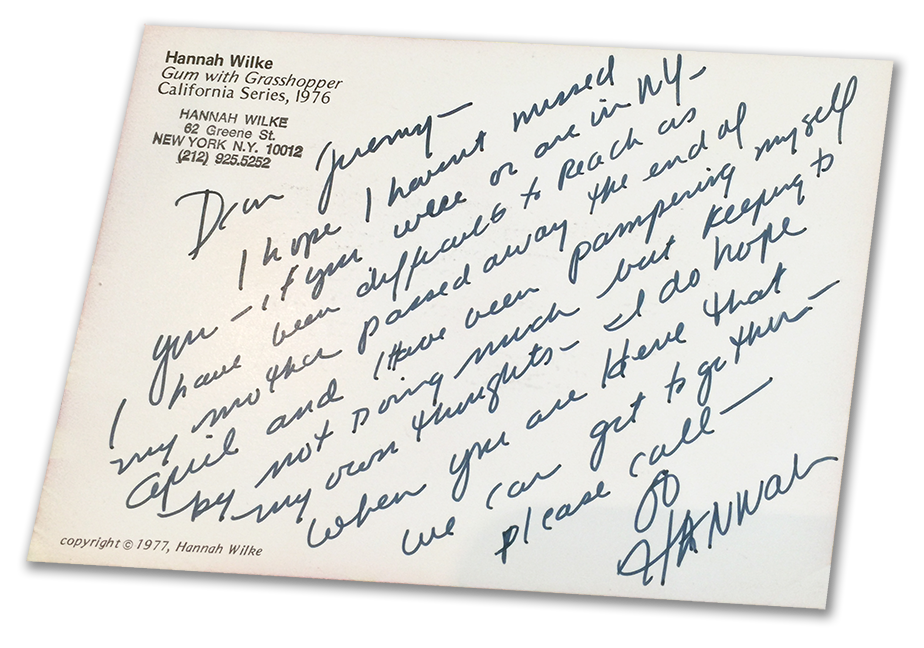 Hannah Wilke
Gum with Grasshopper
California Series, 1976
HANNAH WILKE
62 Greene St.
NEW YORK N.Y. 10012
(212) 925.5252
Dear Jeremy—
I hope I havent missed
you – if you were or are in NY–
I have been difficult to reach as
my mother passed away the end of
April and I Have been pampering myself
by not Doing much but keeping to
my own thoughts– I do hope
when you are Here that
we can get together–
please call—
HANNAH
copyright © 1977, Hannah Wilke